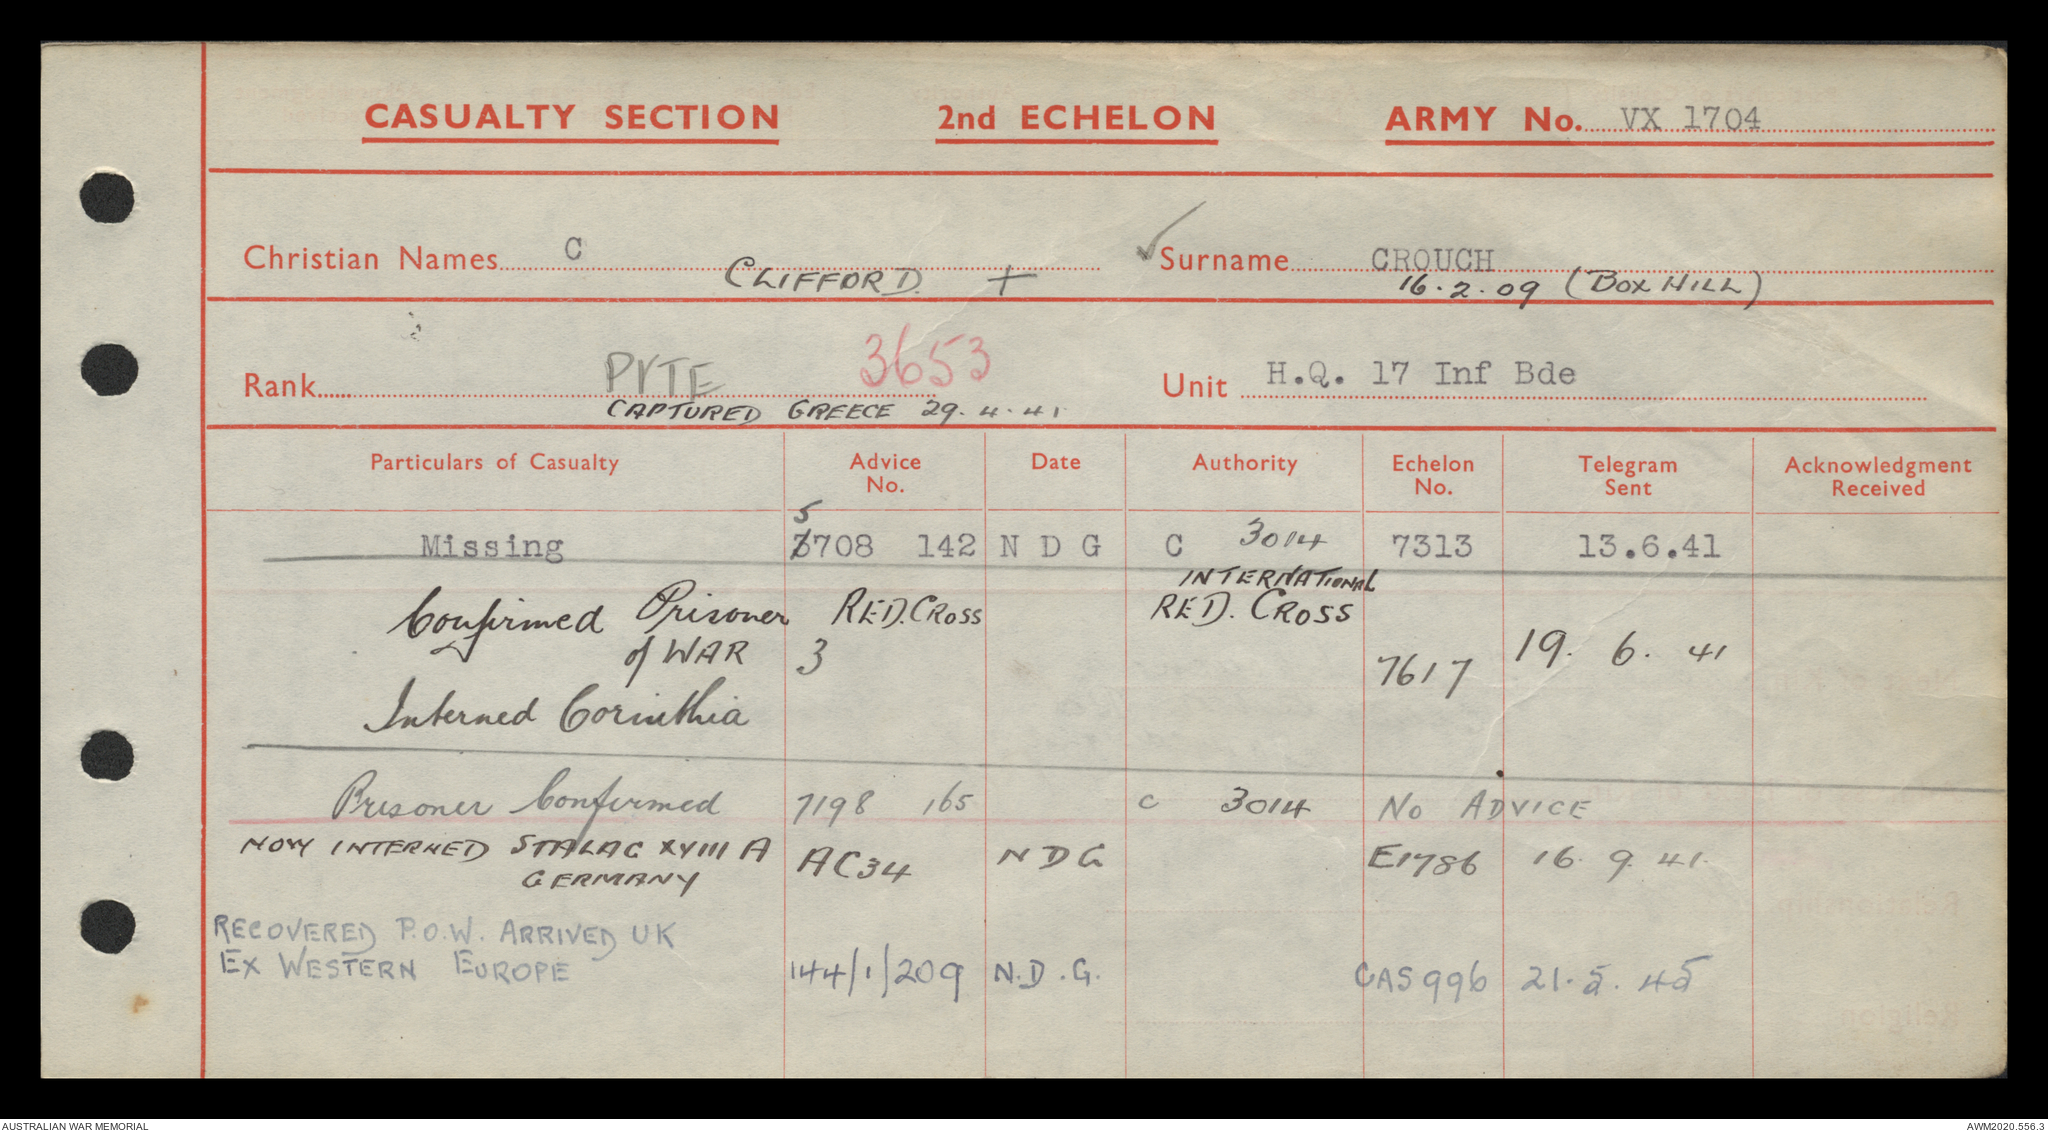 CASUALTY SECTION 2nd ECHELON ARMY No. VX 1704
Christian Names C Surname CROUCH
CLIFFORD. + 16.2.09 (BOX HILL)
Rank PVTE 3653 Unit H.Q. 17 Inf Bde
CAPTURED GREECE 29.4.41
Particulars of Casualty Advice No. Date Authority Echelon No. Telegram Sent Acknowledgment Received
5
Missing 3708 142 N D G C 3014 7313 13.6.41
Confirmed Prisoner RED.CROSS INTERNATIONAL RED. CROSS
of WAR 3 7617 19. 6. 41
Interned Corinthia
Prisoner Confirmed 7198 165 C 3014 No ADVICE
NOW INTERNED STALAG XVIII A AC34 NDG E1786 16. 9. 41.
GERMANY
RECOVERED P.O.W. ARRIVED UK
EX WESTERN EUROPE 144/1/209 N.D.G. CAS996 21.5.45
AUSTRALIAN WAR MEMORIAL AWM2020.556.3